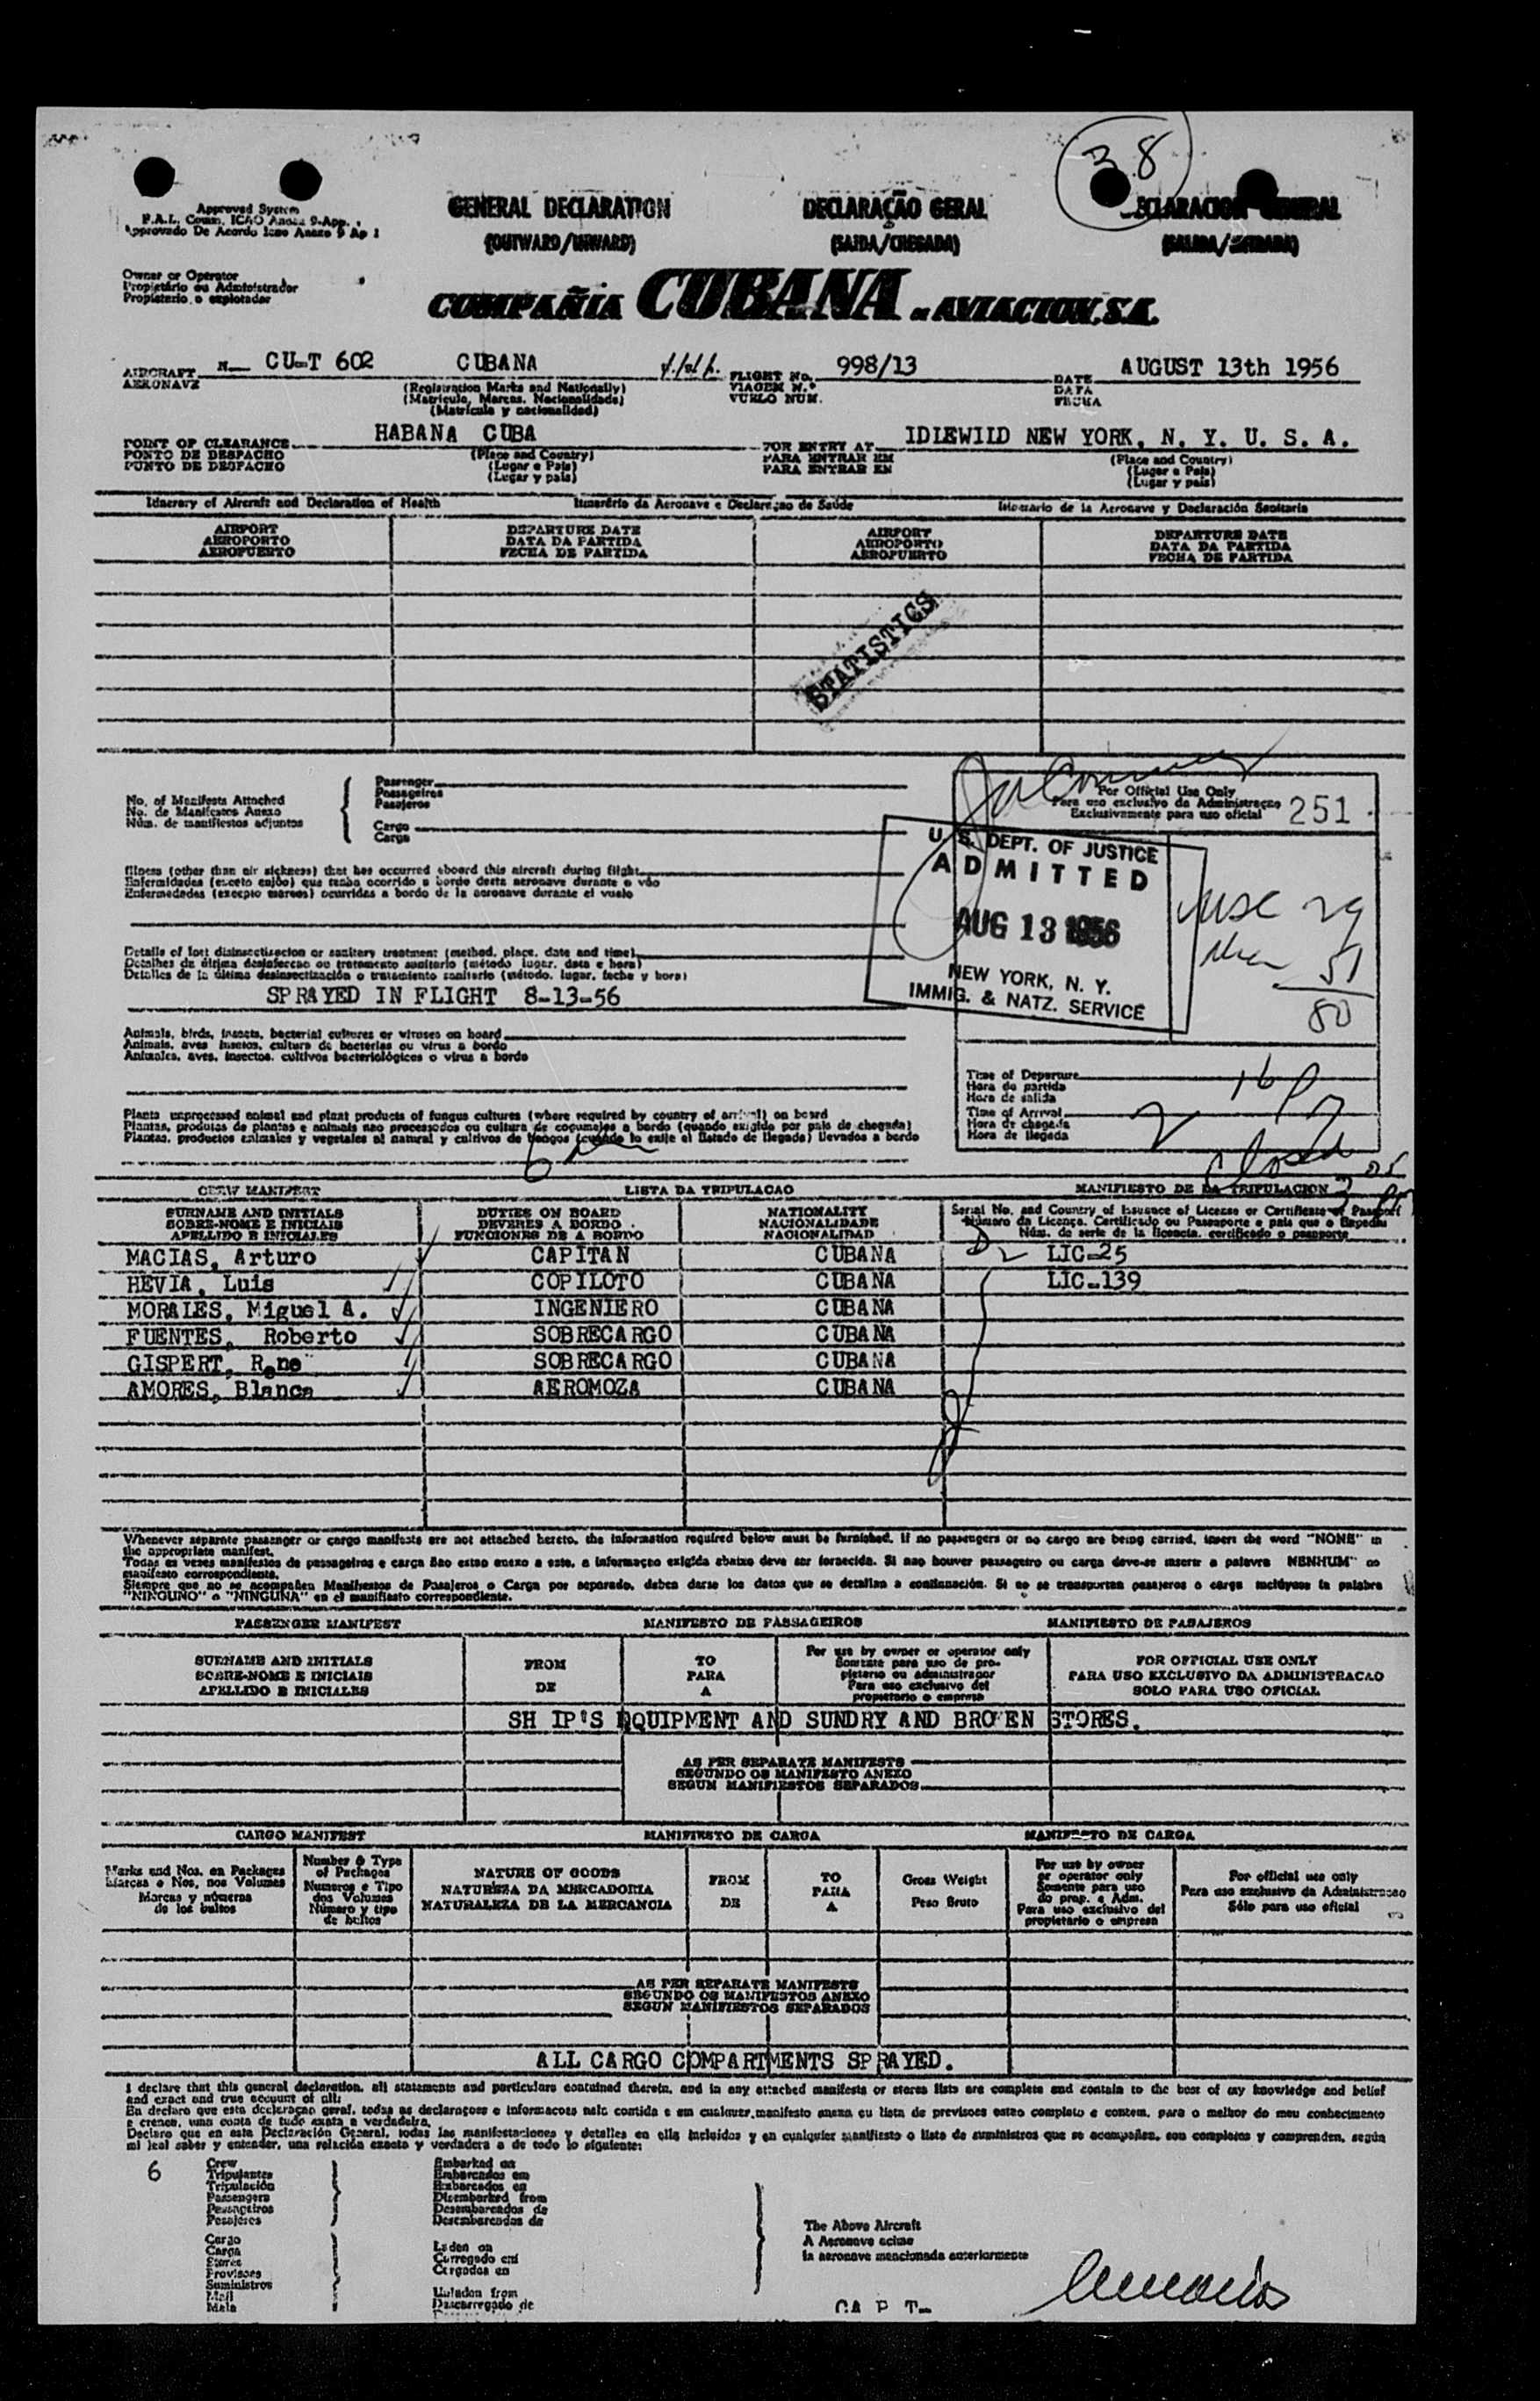 38
Approved System
F.A.L. Comm. ICAO Annex 9-App.
Approvado De Acordo Icao Anexo 9 Ap 1
GENERAL DECLARATION
(OUTWARD/INWARD)
DECLARAÇÃO GERAL
(SAIDA/CHEGADA)
DECLARACION GENERAL
(SALIDA/ENTRADA)
Owner or Operator
Propietário ou Administrador
Propietario o explotador
COMPAÑIA CUBANA DE AVIACION, S.A.
AIRCRAFT N CU-T 602 CUBANA
AERONAVE
(Registration Marks and Nationally)
(Matricula, Marcas, Nacionalidade)
(Matricula y nacionalidad)
FLIGHT No. 998/13
VIAGEM N.º
VUELO NUM.
DATE AUGUST 13th 1956
DATA
FECHA
POINT OF CLEARANCE HABANA CUBA
PONTO DE DESPACHO
PUNTO DE DESPACHO
(Place and Country)
(Lugar e Pais)
(Lugar y pais)
FOR ENTRY AT IDLEWILD NEW YORK, N. Y. U. S. A.
PARA ENTRAR EM
PARA ENTRAR EN
(Place and Country)
(Lugar e Pais)
(Lugar y pais)
Itinerary of Aircraft and Declaration of Health
Itinerário da Aeronave e Declaraçao de Saúde
Itinerario de la Aeronave y Declaración Sanitaria
AIRPORT
AEROPORTO
AEROPUERTO
DEPARTURE DATE
DATA DA PARTIDA
FECHA DE PARTIDA
AIRPORT
AEROPORTO
AEROPUERTO
DEPARTURE DATE
DATA DA PARTIDA
FECHA DE PARTIDA
STATISTICS
No. of Manifests Attached
No. de Manifestos Anexo
Núm. de manifiestos adjuntos
Passenger
Passageiros
Pasajeros
Cargo
Carga
For Official Use Only
Para uso exclusivo da Administraçao
Exclusivamente para uso oficial
251
U. S. DEPT. OF JUSTICE
ADMITTED
AUG 13 1956
NEW YORK, N. Y.
IMMIG. & NATZ. SERVICE
USC 29
51
80
Illness (other than air sickness) that has occurred aboard this aircraft during flight
Enfermidades (exceto enjôo) que tenha ocorrido a bordo desta aeronave durante o vôo
Enfermedades (excepto mareos) ocurridas a bordo de la aeronave durante el vuelo
Details of last disinsectisacion or sanitary treatment (method, place, date and time)
Detalhes da última desinfeccao ou tratamento sanitario (método lugar, data e hora)
Detalles de la última desinsectización o tratamiento sanitario (método, lugar, fecha y hora)
SPRAYED IN FLIGHT 8-13-56
Animals, birds, insects, bacterial cultures or viruses on board
Animais, aves insetos, cultura de bacterias ou virus a bordo
Animales, aves, insectos, cultivos bacteriológicos o virus a bordo
Time of Departure
Hora da partida
Hora de salida
Time of Arrival
Hora de chegada
Hora de llegada
Closed
Plants unprocessed animal and plant products of fungus cultures (where required by country of arrival) on board
Plantas, produtos de plantas e animais nao processados ou cultura de cogumelos a bordo (quando exigido por pais de chegada)
Plantas, productos animales y vegetales al natural y cultivos de hongos (cuando lo exije el Estado de llegada) llevados a bordo
CREW MANIFEST
LISTA DA TRIPULACAO
MANIFIESTO DE LA TRIPULACION
SURNAME AND INITIALS
SOBRE-NOME E INICIAIS
APELLIDO E INICIALES
DUTIES ON BOARD
DEVERES A BORDO
FUNCIONES DE A BORDO
NATIONALITY
NACIONALIDADE
NACIONALIDAD
Serial No. and Country of Issuance of License or Certificate or Passport
Número da Licença, Certificado ou Passaporte e pais que o Expediu
Núm. de serie de la licencia, certificado o pasaporte
MACIAS, Arturo CAPITAN CUBANA LIC-25
HEVIA, Luis COPILOTO CUBANA LIC-139
MORALES, Miguel A. INGENIERO CUBANA
FUENTES, Roberto SOBRECARGO CUBANA
GISPERT, Rene SOBRECARGO CUBANA
AMORES, Blanca AEROMOZA CUBANA
Whenever separate passenger or cargo manifests are not attached hereto, the information required below must be furnished. If no passengers or no cargo are being carried, insert the word "NONE" in
the appropriate manifest.
Todas as vezes manifestos de passageiros e carga nao estao anexo a este, a informaçao exigida abaixo deve ser fornecida. Si nao houver passageiro ou carga deve-se inserir a palavra NENHUM" no
manifesto correspondiente.
Siempre que no se acompañen Manifiestos de Pasajeros o Carga por separado, deben darse los datos que se detallan a continuación. Si no se transportan pasajeros o carga inclúyase la palabra
"NINGUNO" o "NINGUNA" en el manifiesto correspondiente.
PASSENGER MANIFEST
MANIFESTO DE PASSAGEIROS
MANIFIESTO DE PASAJEROS
SURNAME AND INITIALS
SOBRE-NOME E INICIAIS
APELLIDO E INICIALES
FROM
DE
TO
PARA
A
For use by owner or operator only
Somente para uso de pro-
pietario ou administrador
Para uso exclusivo del
propietario o empresa
FOR OFFICIAL USE ONLY
PARA USO EXCLUSIVO DA ADMINISTRACAO
SOLO PARA USO OFICIAL
SH IP'S EQUIPMENT AND SUNDRY AND BROKEN STORES.
AS PER SEPARATE MANIFESTS
SEGUNDO OS MANIFESTO ANEXO
SEGUN MANIFIESTOS SEPARADOS
CARGO MANIFEST
MANIFIESTO DE CARGA
MANIFESTO DE CARGA
Marks and Nos. en Packages
Marcas e Nos. nos Volumes
Marcas y números
de los bultos
Number & Type
of Packages
Numeros e Tipo
dos Volumes
Número y tipo
de bultos
NATURE OF GOODS
NATUREZA DA MERCADORIA
NATURALEZA DE LA MERCANCIA
FROM
DE
TO
PARA
A
Gross Weight
Peso Bruto
For use by owner
or operator only
Somente para uso
do prop. e Adm.
Para uso exclusivo del
propietario o empresa
For official use only
Para uso exclusivo da Administracao
Sólo para uso oficial
AS PER SEPARATE MANIFESTS
SEGUNDO OS MANIFESTOS ANEXO
SEGUN MANIFIESTOS SEPARADOS
ALL CARGO COMPARTMENTS SPRAYED.
I declare that this general declaration, all statements and particulars contained therein, and in any attached manifests or stores lists are complete and contain to the best of my knowledge and belief
and exact and true account of all:
Eu declaro que esta declaraçao geral, todas as declaraçoes e informacoes nela contida e em cualquer manifesto anexa ou lista de previsoes estao completo e contem, para o melhor do meu conhecimento
e crenca, uma conta de tudo exata a verdadeira.
Declaro que en esta Declaración General, todas las manifestaciones y detalles en ella incluidos y en cualquier manifiesto o lista de suministros que se acompañen, son completos y comprenden, según
mi leal saber y entender, una relación exacta y verdadera a de todo lo siguiente:
6
Crew
Tripulantes
Tripulación
Passengers
Passageiros
Pasajeros
Embarked on
Embarcados em
Embarcados en
Disembarked from
Desembarcados de
Desembarcados de
Cargo
Carga
Stores
Provisoes
Suministros
Mail
Mala
Laden on
Carregado em
Cargados en
Unladen from
Descarregado de
The Above Aircraft
A Aeronave acima
la aeronave mencionada anteriormente
CAPT-